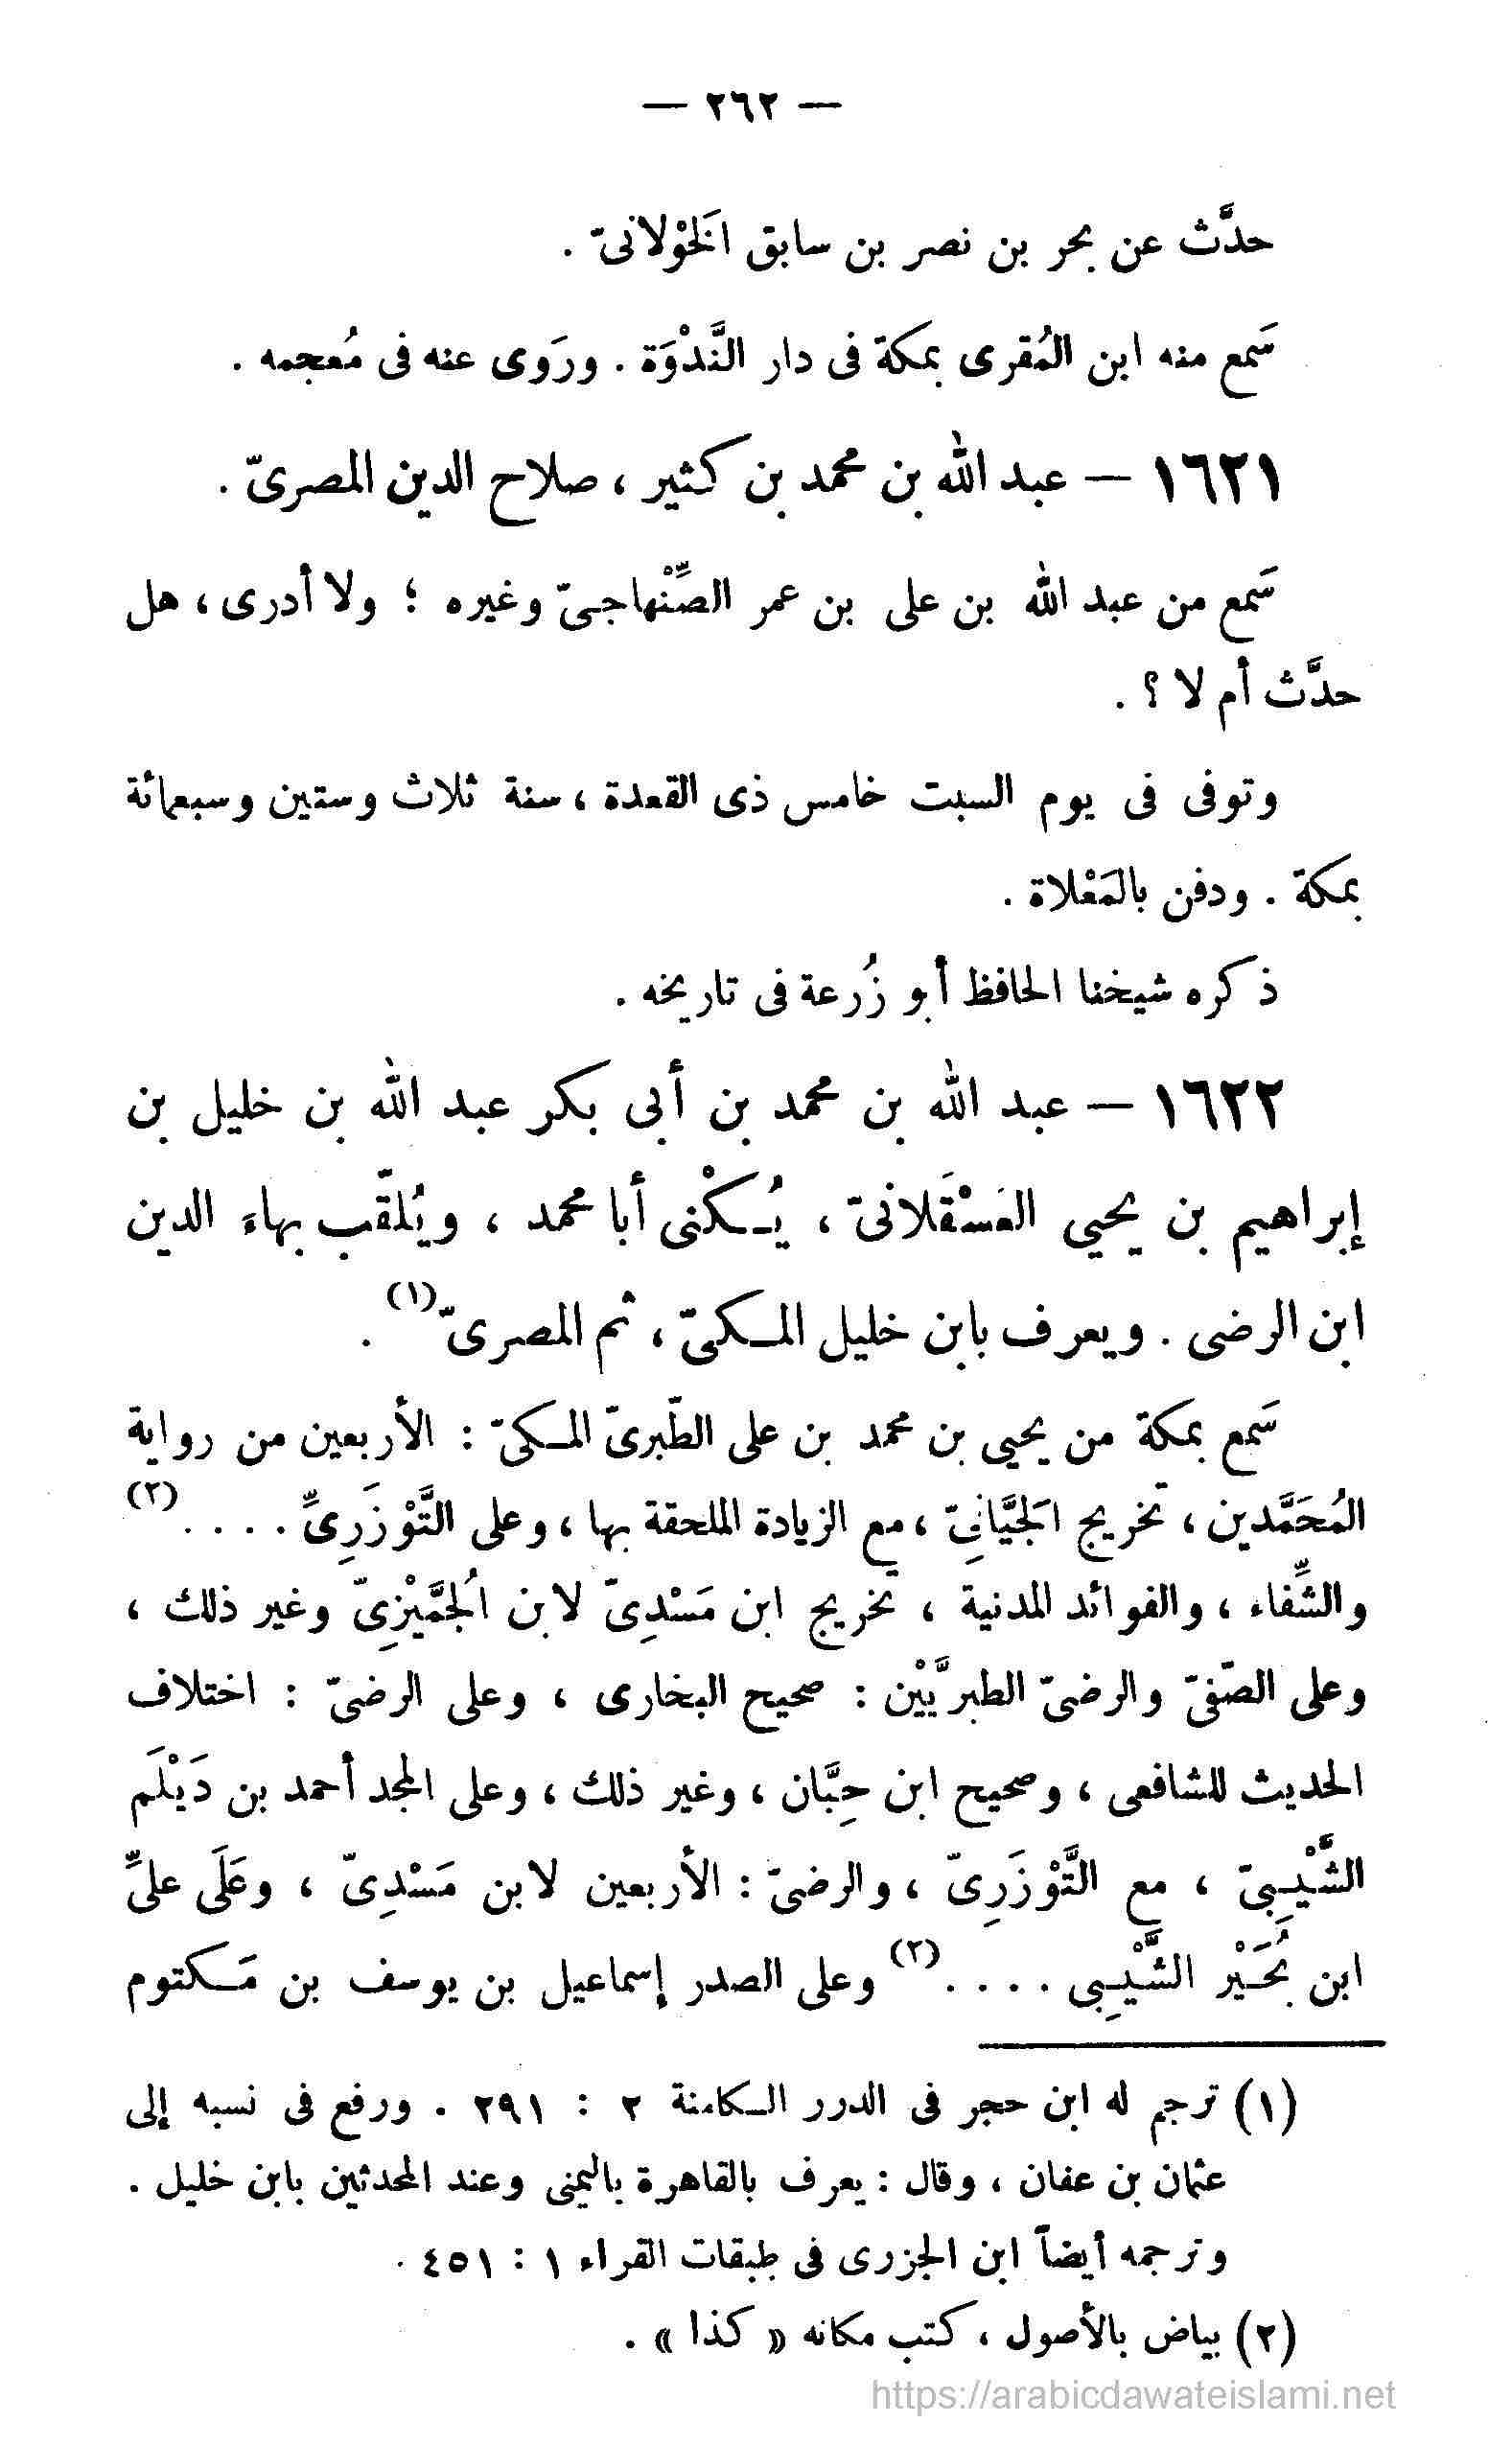 — ٢٦٢ —
حدَّث عن بحر بن نصر بن سابق الَخْوْلانىّ .
سَمع منه ابن المُقرى بمكة فى دار النَّدْوَة . وروَى عنه فى مُعجمه .
١٦٢١ — عبد الله بن محمد بن كثير ، صلاح الدين المصرىّ .
سَمع من عبد الله بن على بن عمر الصِّنْهاجىّ وغيره ؛ ولا أدرى ، هل
حدَّث أم لا ؟ .
وتوفى فى يوم السبت خامس ذى القعدة ، سنة ثلاث وستين وسبعمائة
بمكة . ودفن بالمَعْلاة .
ذكره شيخنا الحافظ أبو زُرعة فى تاريخه .
١٦٢٢ — عبد الله بن محمد بن أبى بكر عبد الله بن خليل بن
إبراهيم بن يحيى العَسْقَلانىّ ، يُكْنى أبا محمد ، ويُلقّب بهاءَ الدين
ابن الرضى . ويعرف بابن خليل المكىّ ، ثم المصرىّ (١) .
سَمع بمكة من يحيى بن محمد بن على الطّبرىّ المكىّ : الأربعين من رواية
المُحَمَّدين ، تخريج الَجيَّانِىّ ، مع الزيادة الملحقة بها ، وعلى التَّوْزَرِىِّ . . . . (٢)
والشِّفاء ، والفوائد المدنية ، تخريج ابن مَسْدِىّ لابن الُجمَّيْزِىّ وغير ذلك ،
وعلى الصّفىّ والرضىّ الطبريَّيْن : صحيح البخارى ، وعلى الرضىّ : اختلاف
الحديث للشافعى ، وصحيح ابن حِبَّان ، وغير ذلك ، وعلى المجد أحمد بن دَيْلَم
الشَّيْبِىّ ، مع التَّوْزَرِىّ ، والرضىّ : الأربعين لابن مَسْدِىّ ، وعَلَى علىِّ
ابن بُحَيْر الشَّيْبِى . . . . (٢) وعلى الصدر إسماعيل بن يوسف بن مَكتوم
(١) ترجم له ابن حجر فى الدرر الكامنة ٢ : ٢٩١ . ورفع فى نسبه إلى
عثمان بن عفان ، وقال : يعرف بالقاهرة باليمنى وعند المحدثين بابن خليل .
وترجمه أيضاً ابن الجزرى فى طبقات القراء ١ : ٤٥١ .
(٢) بياض بالأصول ، كتب مكانه « كذا » .
https://arabicdawateislami.net